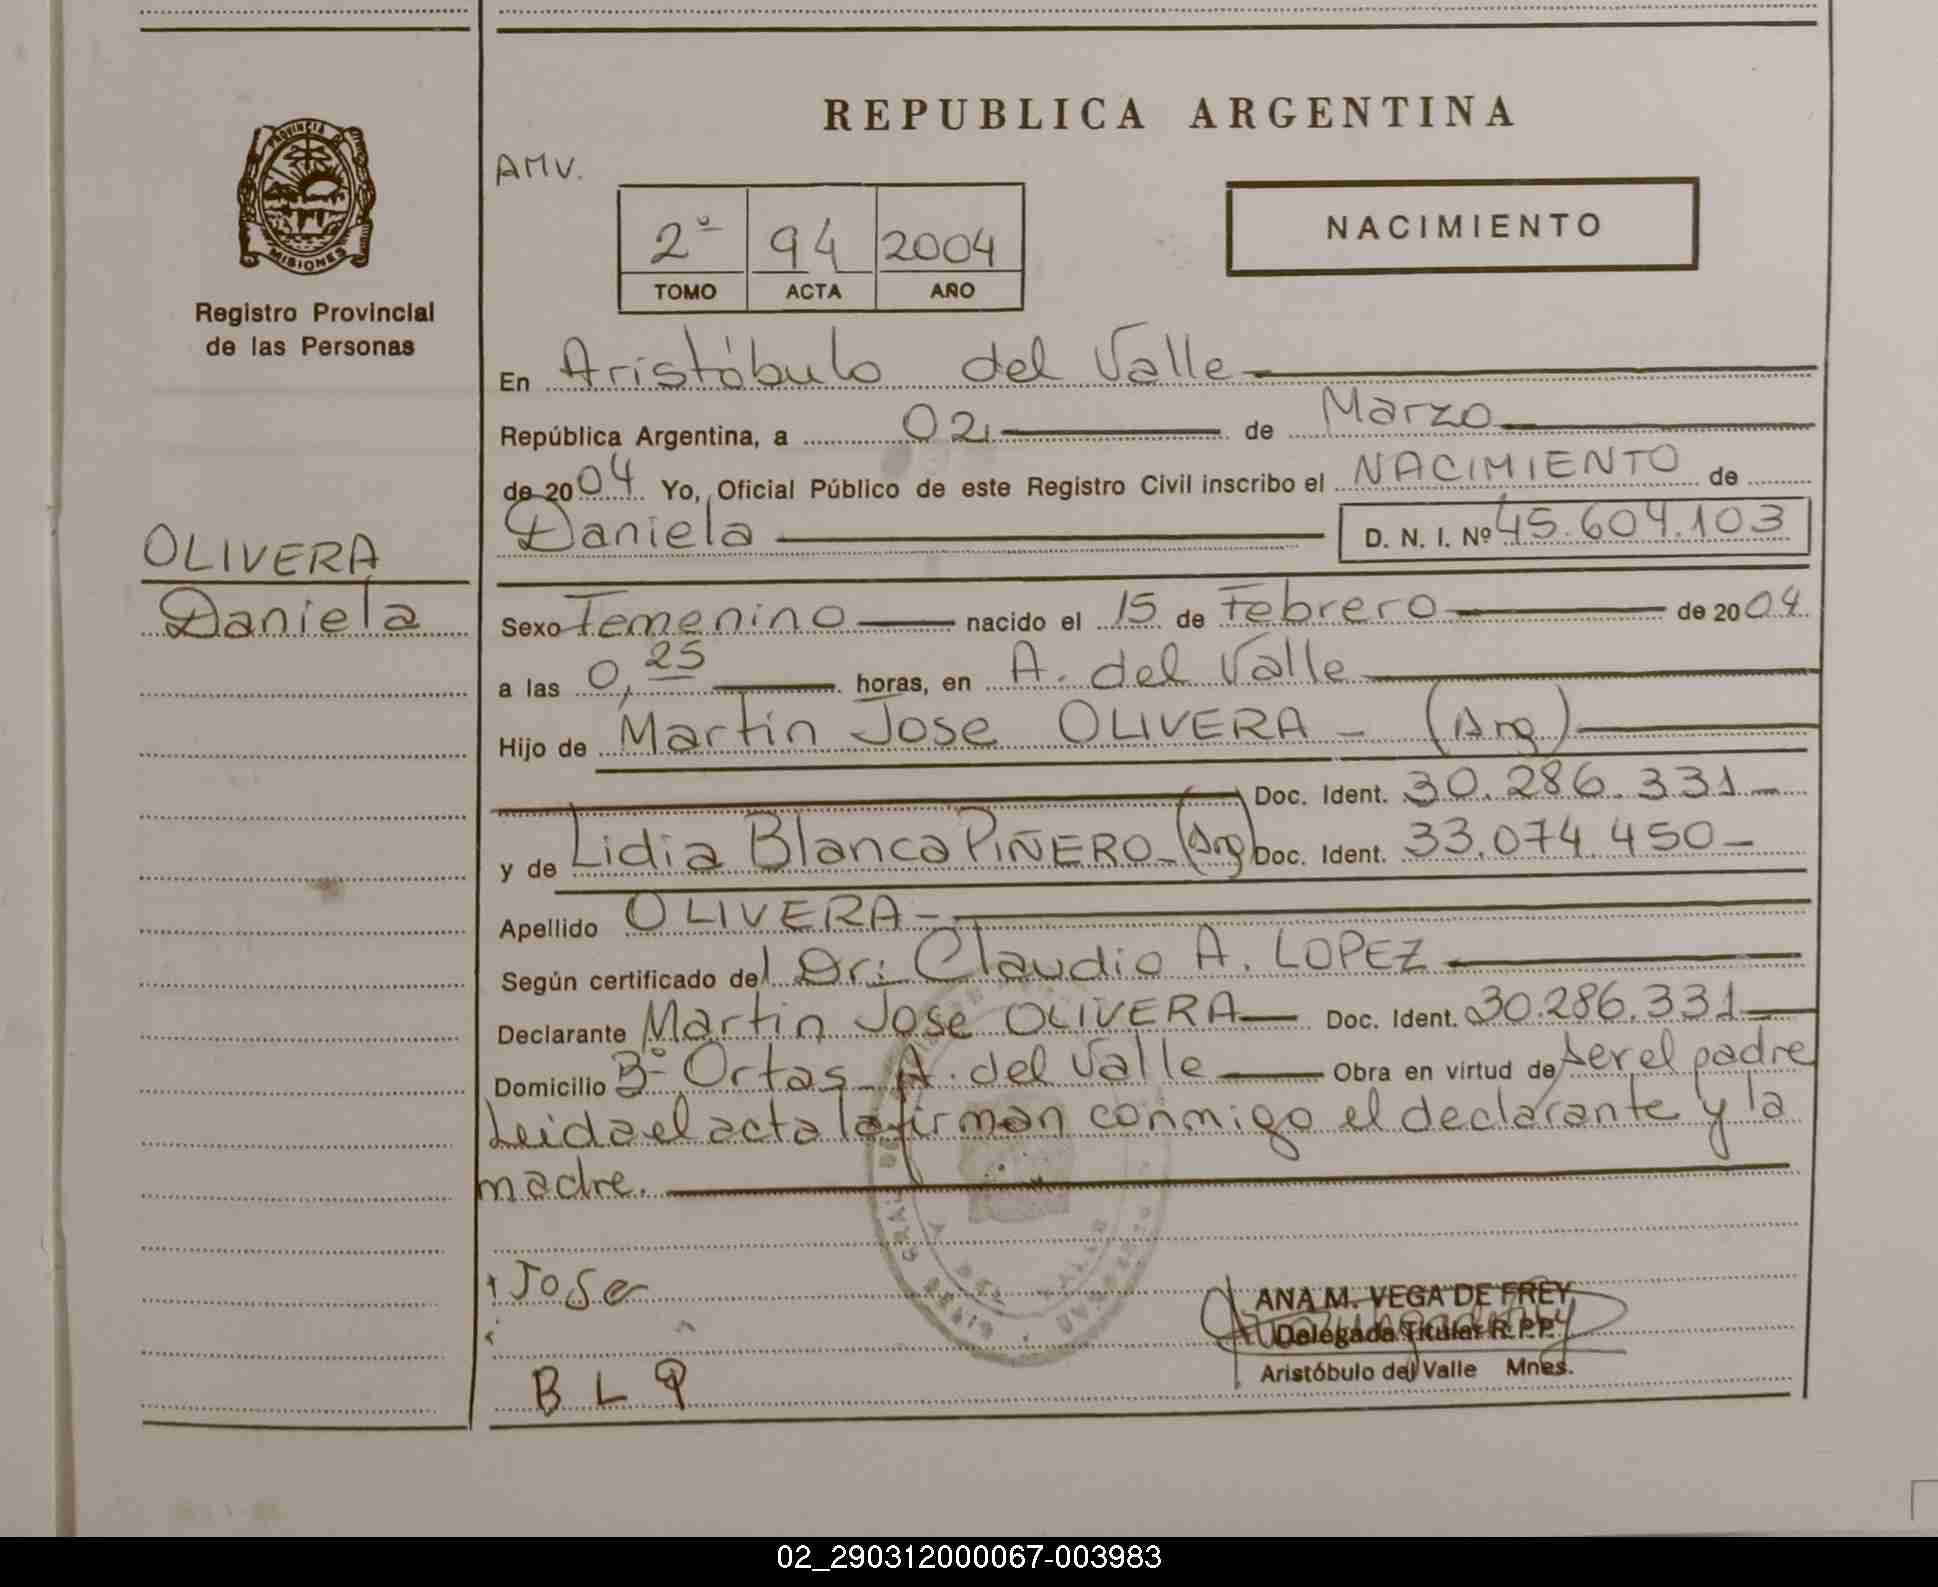 REPUBLICA ARGENTINA
AMV.
NACIMIENTO
2º 94 2004
TOMO ACTA AÑO
PROVINCIA DE
MISIONES
Registro Provincial
de las Personas
OLIVERA
Daniela
En Aristóbulo del Valle
República Argentina, a 02 de Marzo
de 2004 Yo, Oficial Público de este Registro Civil inscribo el NACIMIENTO de
Daniela D. N. I. Nº 45.604.103
Sexo Femenino nacido el 15 de Febrero de 2004
a las 0,25 horas, en A. del Valle
Hijo de Martin Jose OLIVERA - (Arg)
Doc. Ident. 30.286.331-
y de Lidia Blanca PIÑERO-(Arg) Doc. Ident. 33.074.450-
Apellido OLIVERA-
Según certificado del Dr: Claudio A. LOPEZ
Declarante Martin Jose OLIVERA Doc. Ident. 30.286.331
Domicilio Bº Ortas A. del Valle Obra en virtud de ser el padre
Leida el acta la firman conmigo el declarante y la
madre.
Jose
B L P
ANA M. VEGA DE FREY
Delegada Titular R.P.P.
Aristóbulo del Valle Mnes.
02_290312000067-003983